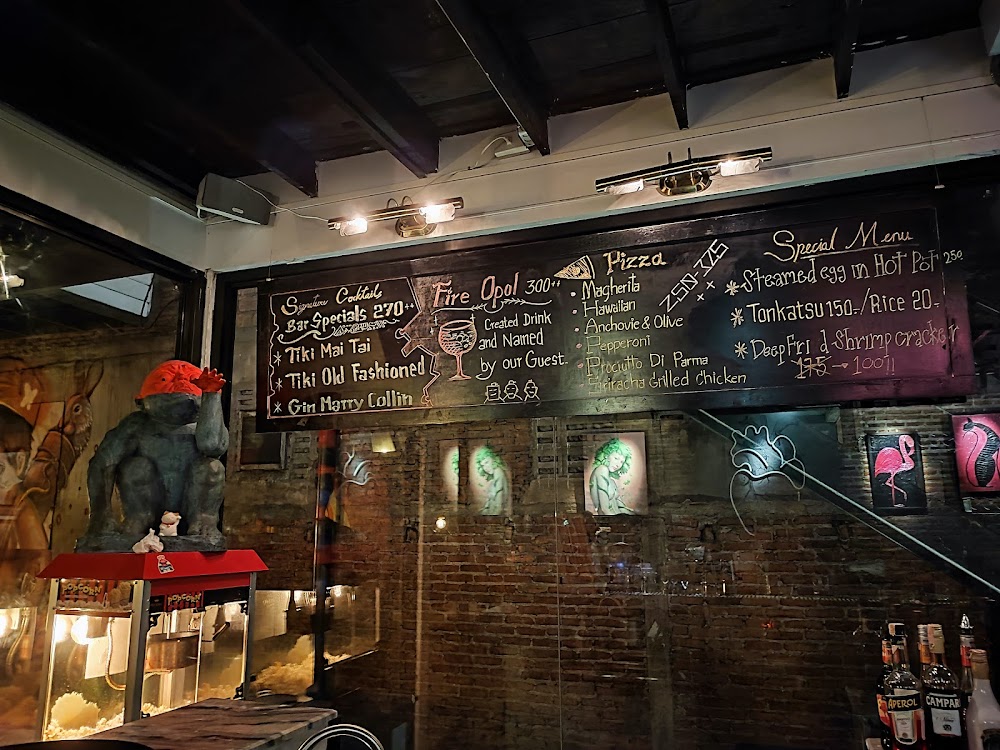 Signature Cocktails
Bar Specials 270++
* Tiki Mai Tai
* Tiki Old Fashioned
* Gin Marry Collin
Fire Opol 300++
Created Drink
and Named
by our Guest.
Pizza
250-325
++
• Magherita
• Hawaiian
• Anchovie & Olive
• Pepperoni
• Prociutto Di Parma
• Sriracha Grilled Chicken
Special Menu
* Steamed egg in Hot Pot 250
* Tonkatsu 150.-/Rice 20.-
* Deep Fri d Shrimp cracker
175 → 100
POPCORN
POPCORN
APEROL
CAMPARI